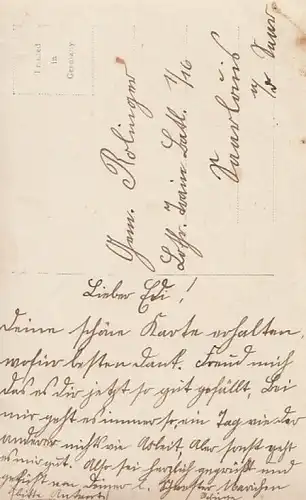 Printed
in
Germany
Gem. Rolinger
Lothr. Train Batl. 1/16
Saarlouis
a/d Saar
Lieber Edi,!
Deine schöne Karte erhalten,
wofür besten Dank. Freud mich
das es dir jetzt so gut gefällt. Bei
mir geht es immer so, ein Tag wie der
anderer nichts wie Arbeit. Aber sonst geht
es mir gut. Also sei herzlich gegrüßt und
geküßt von deiner l. Schwester Mariechen
Bitte Antwort